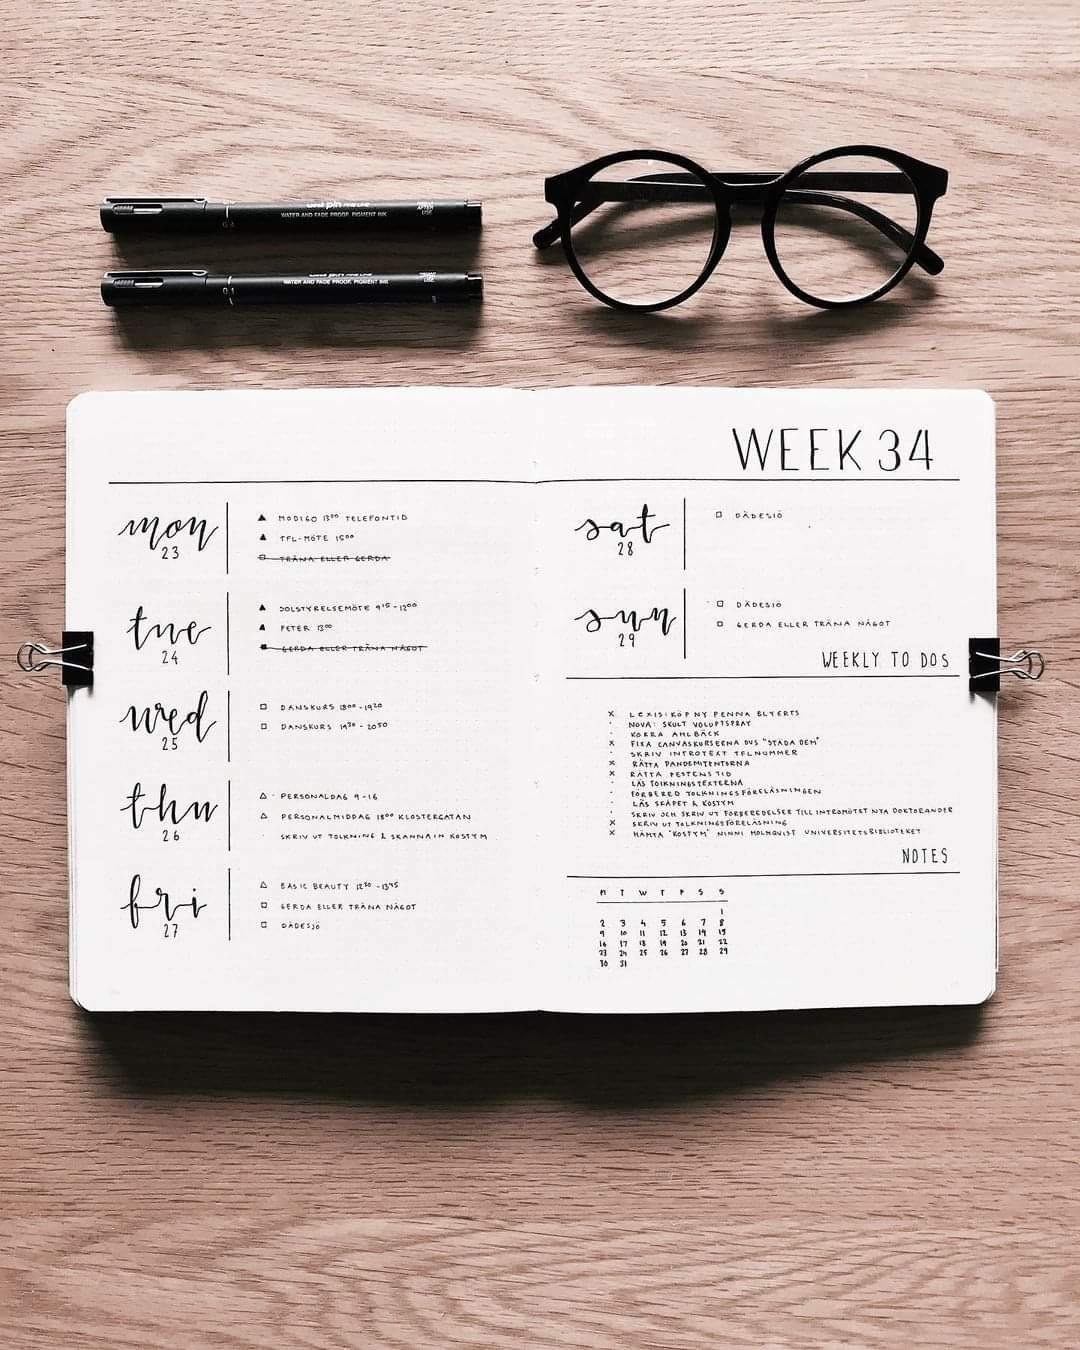 uni pin fine line
WATER AND FADE PROOF, PIGMENT INK
uni pin fine line
WATER AND FADE PROOF, PIGMENT INK
WEEK 34
mon
23
MODIGO 13⁰⁰ TELEFONTID
TFL-MÖTE 15⁰⁰
TRÄNA ELLER GERDA
tue
24
SOLSTYRELSEMÖTE 9¹⁵-12⁰⁰
PETER 13⁰⁰
GERDA ELLER TRÄNA NÅGOT
wed
25
DANSKURS 18⁰⁰-19²⁰
DANSKURS 19³⁰-20⁵⁰
thu
26
PERSONALDAG 9-16
PERSONALMIDDAG 18⁰⁰ KLOSTERGATAN
SKRIV UT TOLKNING & SKANNA IN KOSTYM
fri
27
BASIC BEAUTY 12³⁰-13⁴⁵
GERDA ELLER TRÄNA NÅGOT
DÄDESJÖ
sat
28
DÄDESJÖ
sun
29
DÄDESJÖ
GERDA ELLER TRÄNA NÅGOT
WEEKLY TO DOS
x LEXIS: KÖP NY PENNA BLYERTS
NOVA: SKULT VOLUPTSPRAY
KORRA AHLBÄCK
x FIXA CANVASKURSERNA OVS "STÄDA DEM"
SKRIV INTROTEXT TFLNUMMER
x RÄTTA PANDEMITENTORNA
x RÄTTA TID
LÄS TOLKNINGSTEXTERNA
FÖRBERED TOLKNINGSFÖRELÄSNINGEN
LÄS SKÅPET & KOSTYM
SKRIV OCH SKRIV UT FÖRBEREDELSER TILL INTROMÖTET NYA DOKTORANDER
x SKRIV UT TOLKNINGSFÖRELÄSNING
x HÄMTA "KOSTYM" NINNI HOLMQVIST UNIVERSITETSBIBLIOTEKET
NOTES
M T W T F S S
1
2 3 4 5 6 7 8
9 10 11 12 13 14 15
16 17 18 19 20 21 22
23 24 25 26 27 28 29
30 31